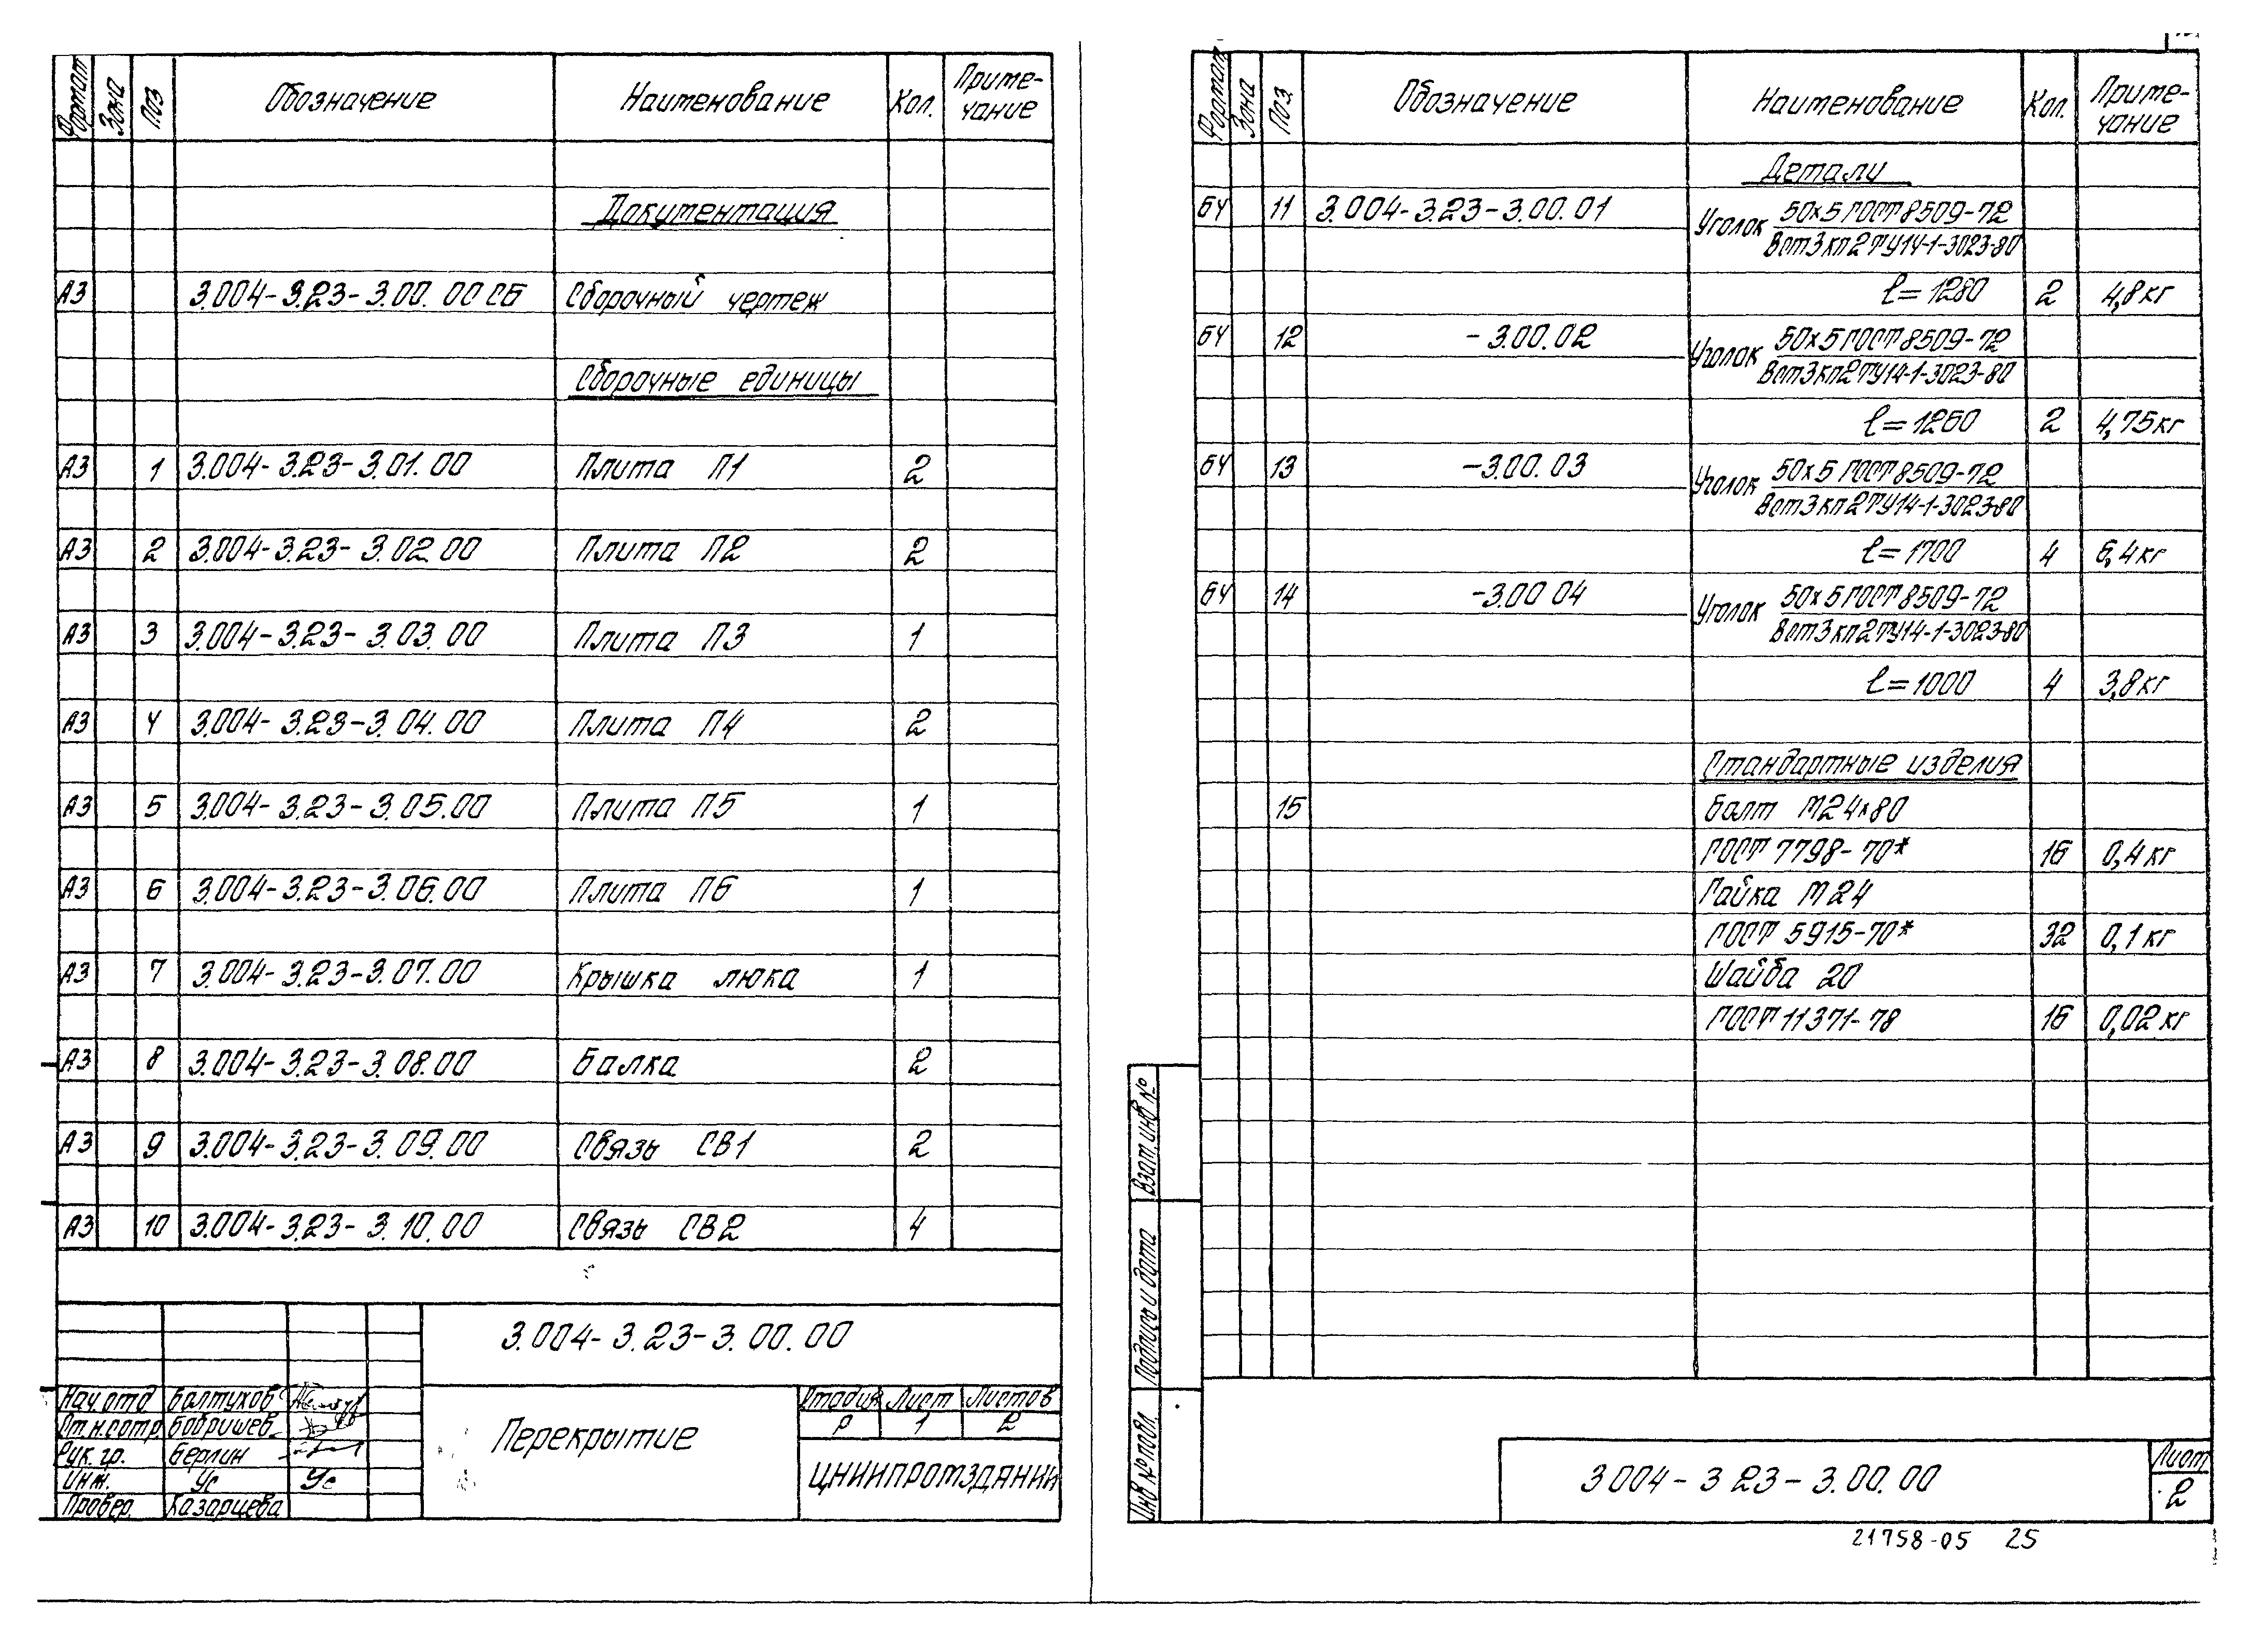 Формат Зона Поз Обозначение Наименование Кол. Приме-
чание
Документация
А3 3.004-3.23-3.00.00СБ Сборочный чертеж
Сборочные единицы
А3 1 3.004-3.23-3.01.00 Плита П1 2
А3 2 3.004-3.23-3.02.00 Плита П2 2
А3 3 3.004-3.23-3.03.00 Плита П3 1
А3 4 3.004-3.23-3.04.00 Плита П4 2
А3 5 3.004-3.23-3.05.00 Плита П5 1
А3 6 3.004-3.23-3.06.00 Плита П6 1
А3 7 3.004-3.23-3.07.00 Крышка люка 1
А3 8 3.004-3.23-3.08.00 Балка 2
А3 9 3.004-3.23-3.09.00 Связь СВ1 2
А3 10 3.004-3.23-3.10.00 Связь СВ2 4
3.004-3.23-3.00.00
Нач.отд Балтухов
Ст.н.сотр. Бобришев
Рук. гр. Берлин
Инж. Ус Ус
Провер. Казарцева
Перекрытие
Стадия Лист Листов
Р 1 2
ЦНИИПРОМЗДАНИЙ
Формат Зона Поз. Обозначение Наименование Кол. Приме-
чание
Детали
БЧ 11 3.004-3.23-3.00.01 Уголок 50х5 ГОСТ 8509-72
Вст3кп2 ТУ14-1-3023-80
ℓ=1280 2 4,8кг
БЧ 12 -3.00.02 Уголок 50х5 ГОСТ 8509-72
Вст3кп2 ТУ14-1-3023-80
ℓ=1260 2 4,75кг
БЧ 13 -3.00.03 Уголок 50х5 ГОСТ 8509-72
Вст3кп2 ТУ14-1-3023-80
ℓ=1700 4 6,4кг
БЧ 14 -3.00 04 Уголок 50х5 ГОСТ 8509-72
Вст3кп2 ТУ14-1-3023-80
ℓ=1000 4 3,8кг
Стандартные изделия
15 Болт М24х80
ГОСТ 7798-70* 16 0,4кг
Гайка М24
ГОСТ 5915-70* 32 0,1кг
Шайба 20
ГОСТ 11371-78 16 0,02кг
Взам.инв №
Подпись и дата
Инв № подл.
3 004-3 23-3.00.00
Лист
2
21758-05 25